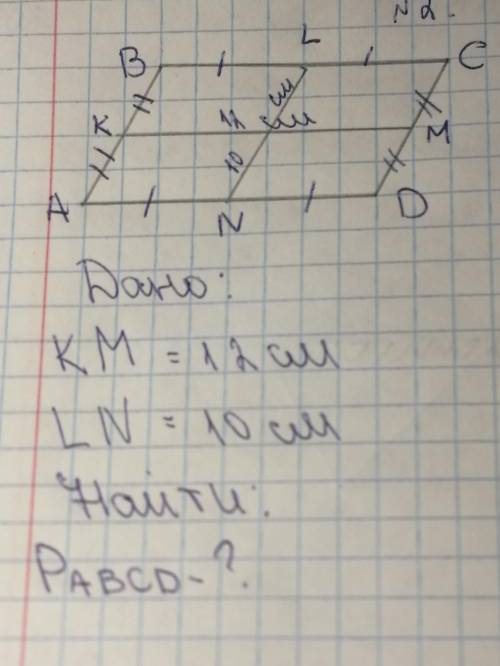 №2.
B L C
K 12 см M
10 см
A N D
Дано:
KM = 12 см
LN = 10 см
Найти:
PABCD - ?